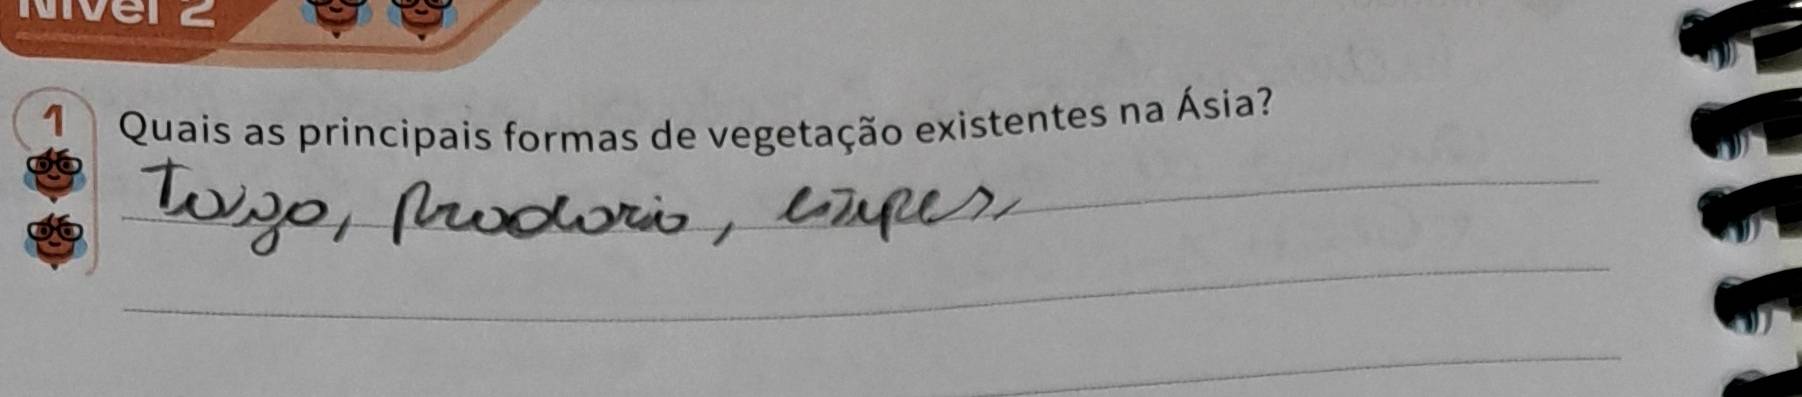 Nível 2
1 Quais as principais formas de vegetação existentes na Ásia?
Taiga, pradaria,